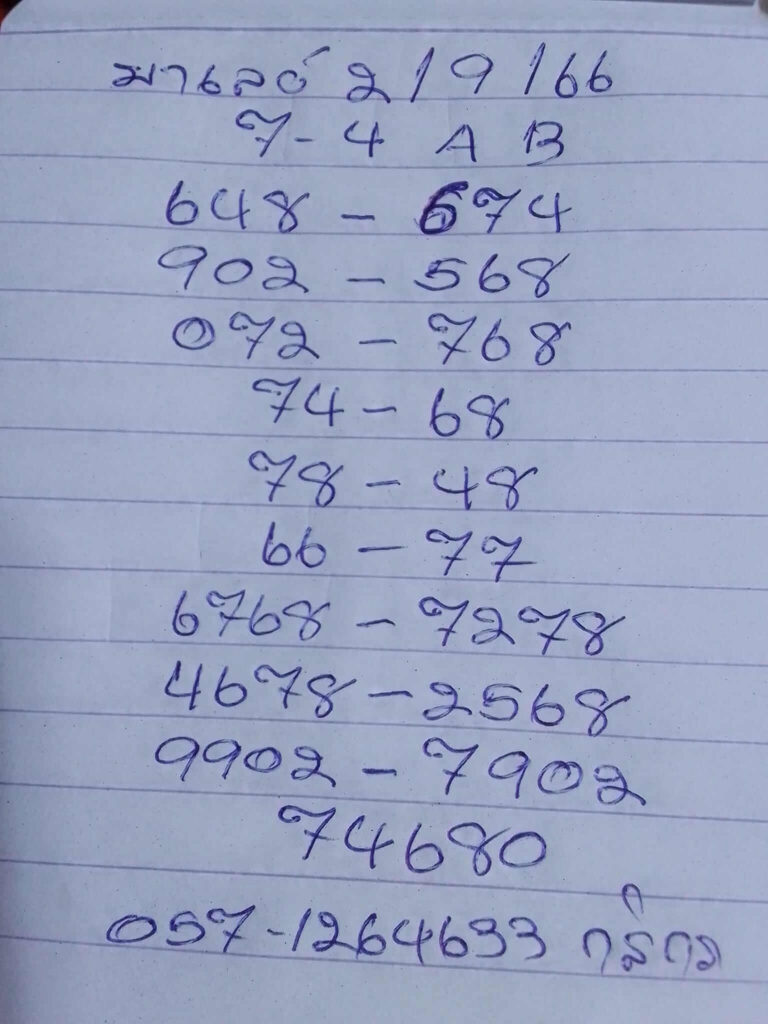 มาเลย์ 2/9/66
7-4 A B
648 - 674
902 - 568
072 - 768
74 - 68
78 - 48
66 - 77
6768 - 7278
4678 - 2568
9902 - 7902
74680
057-1264633